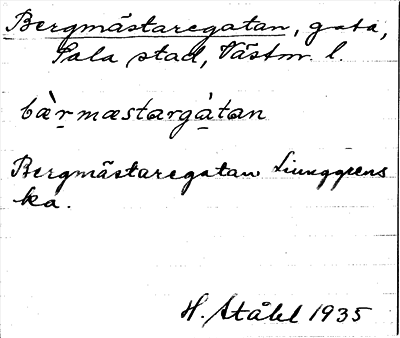 Bergmästaregatan, gata,
Sala stad, Västm. l.
bæ̀r̤mæstargà̤tan
Bergmästaregatan Ljunggrens
ka.
H. Ståhl 1935